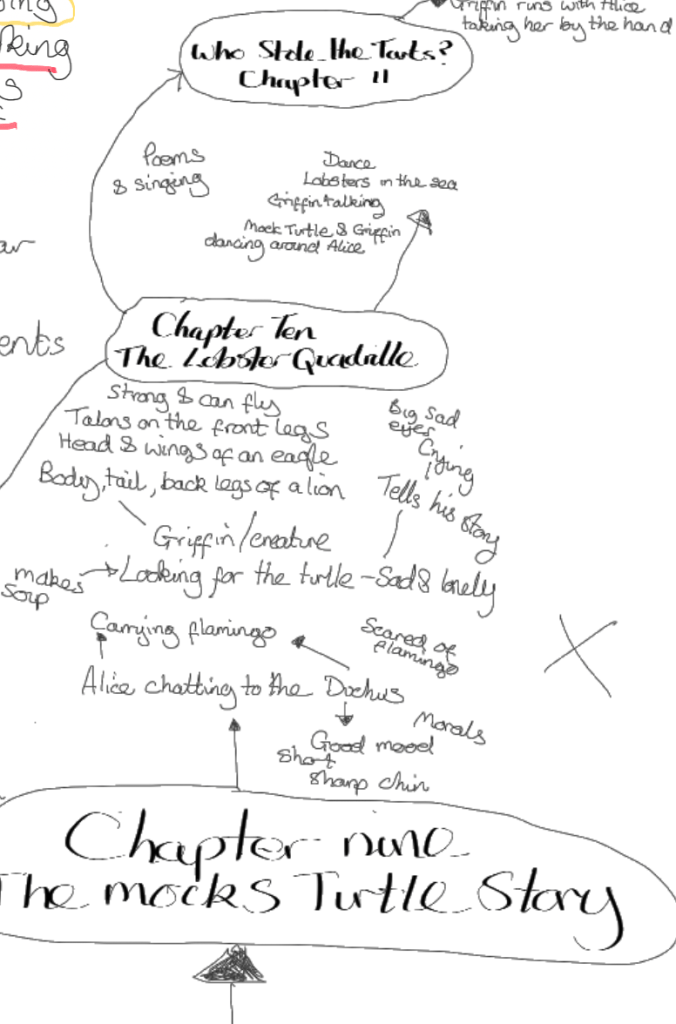 Griffin runs with Alice
taking her by the hand
Who Stole the Tarts?
Chapter 11
Poems
& singing
Dance
Lobsters in the sea
Griffin talking
Mock Turtle & Griffin
dancing around Alice
Chapter Ten
The Lobster Quadrille
Strong & can fly
Talons on the front legs
Head & wings of an eagle
Body, tail, back legs of a lion
Big sad
eyes
Crying
Tells his story
Griffin/creature
makes
soup
Looking for the turtle - Sad & lonely
Carrying flamingo
Scared of
flamingo
Alice chatting to the Duchus
Morals
Good mood
Short
sharp chin
Chapter nine
The mocks Turtle Story